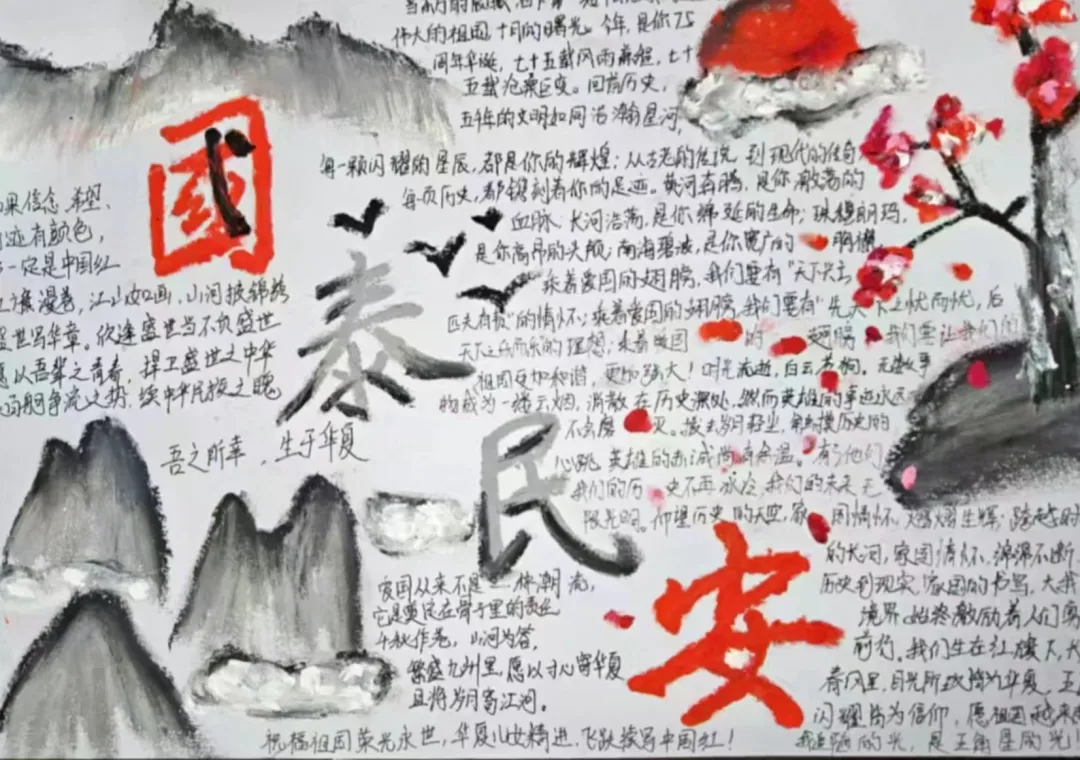 伟大的祖国,十月的曙光。今年,是你75
周年华诞,七十五载风雨兼程,七十
五载沧桑巨变。回首历史,
五千年的文明如同浩瀚星河,
每一颗闪耀的星辰,都是你的辉煌;从古老的传说 到现代的传奇
每一页历史,都镌刻着你的足迹。黄河奔腾,是你激荡的
血脉、长河浩荡,是你绵延的生命;珠穆朗玛,
是你高昂的头颅;南海碧波,是你宽广的
乘着爱国的翅膀,我们要有"天下兴亡
匹夫有责"的情怀;乘着爱国的翅膀,我们要有"先天下之忧而忧,后
天下之乐而乐的理想;乘着爱国 的 翅膀 我们要让我们的
祖国更加和谐,更加强大!时光流逝,白云苍狗。无数事
物成为一缕云烟,消散在历史深处,然而英雄的事迹永远
不会磨灭。拨去岁月轻尘,触摸历史的
心跳,英雄的赤诚尚有余温。有了他们
我们的历 史不再冰冷,我们的未来无
限光明。仰望历史的天空,家 国情怀 熠熠生辉;跨越时
的长河,家国情怀,绵绵不断
历史到现实,家国的书写,大我
境界,始终激励着人们勇
前行。我们生在红旗下,长
春风里,目光所致皆为华夏,五
闪耀皆为信仰,愿祖国越来
的光,是五角星的光!
果信念、希望、
迹有颜色,
一定是中国红
漫卷,江山如画,山河披锦绣
盛世写华章。欣逢盛世当不负盛世
愿以吾辈之青春,捍卫盛世之中华
争流之势,续中华民族之魄
吾之所幸,生于华夏
國
泰
民
安
爱国从来不是一株潮流,
它是奠定在骨子里的责任
千秋作卷,山河为答,
繁盛九州里,愿以寸心寄华夏
且将岁月寄江河。
祝福祖国荣光永世,华夏儿女精进,飞跃续写中国红!